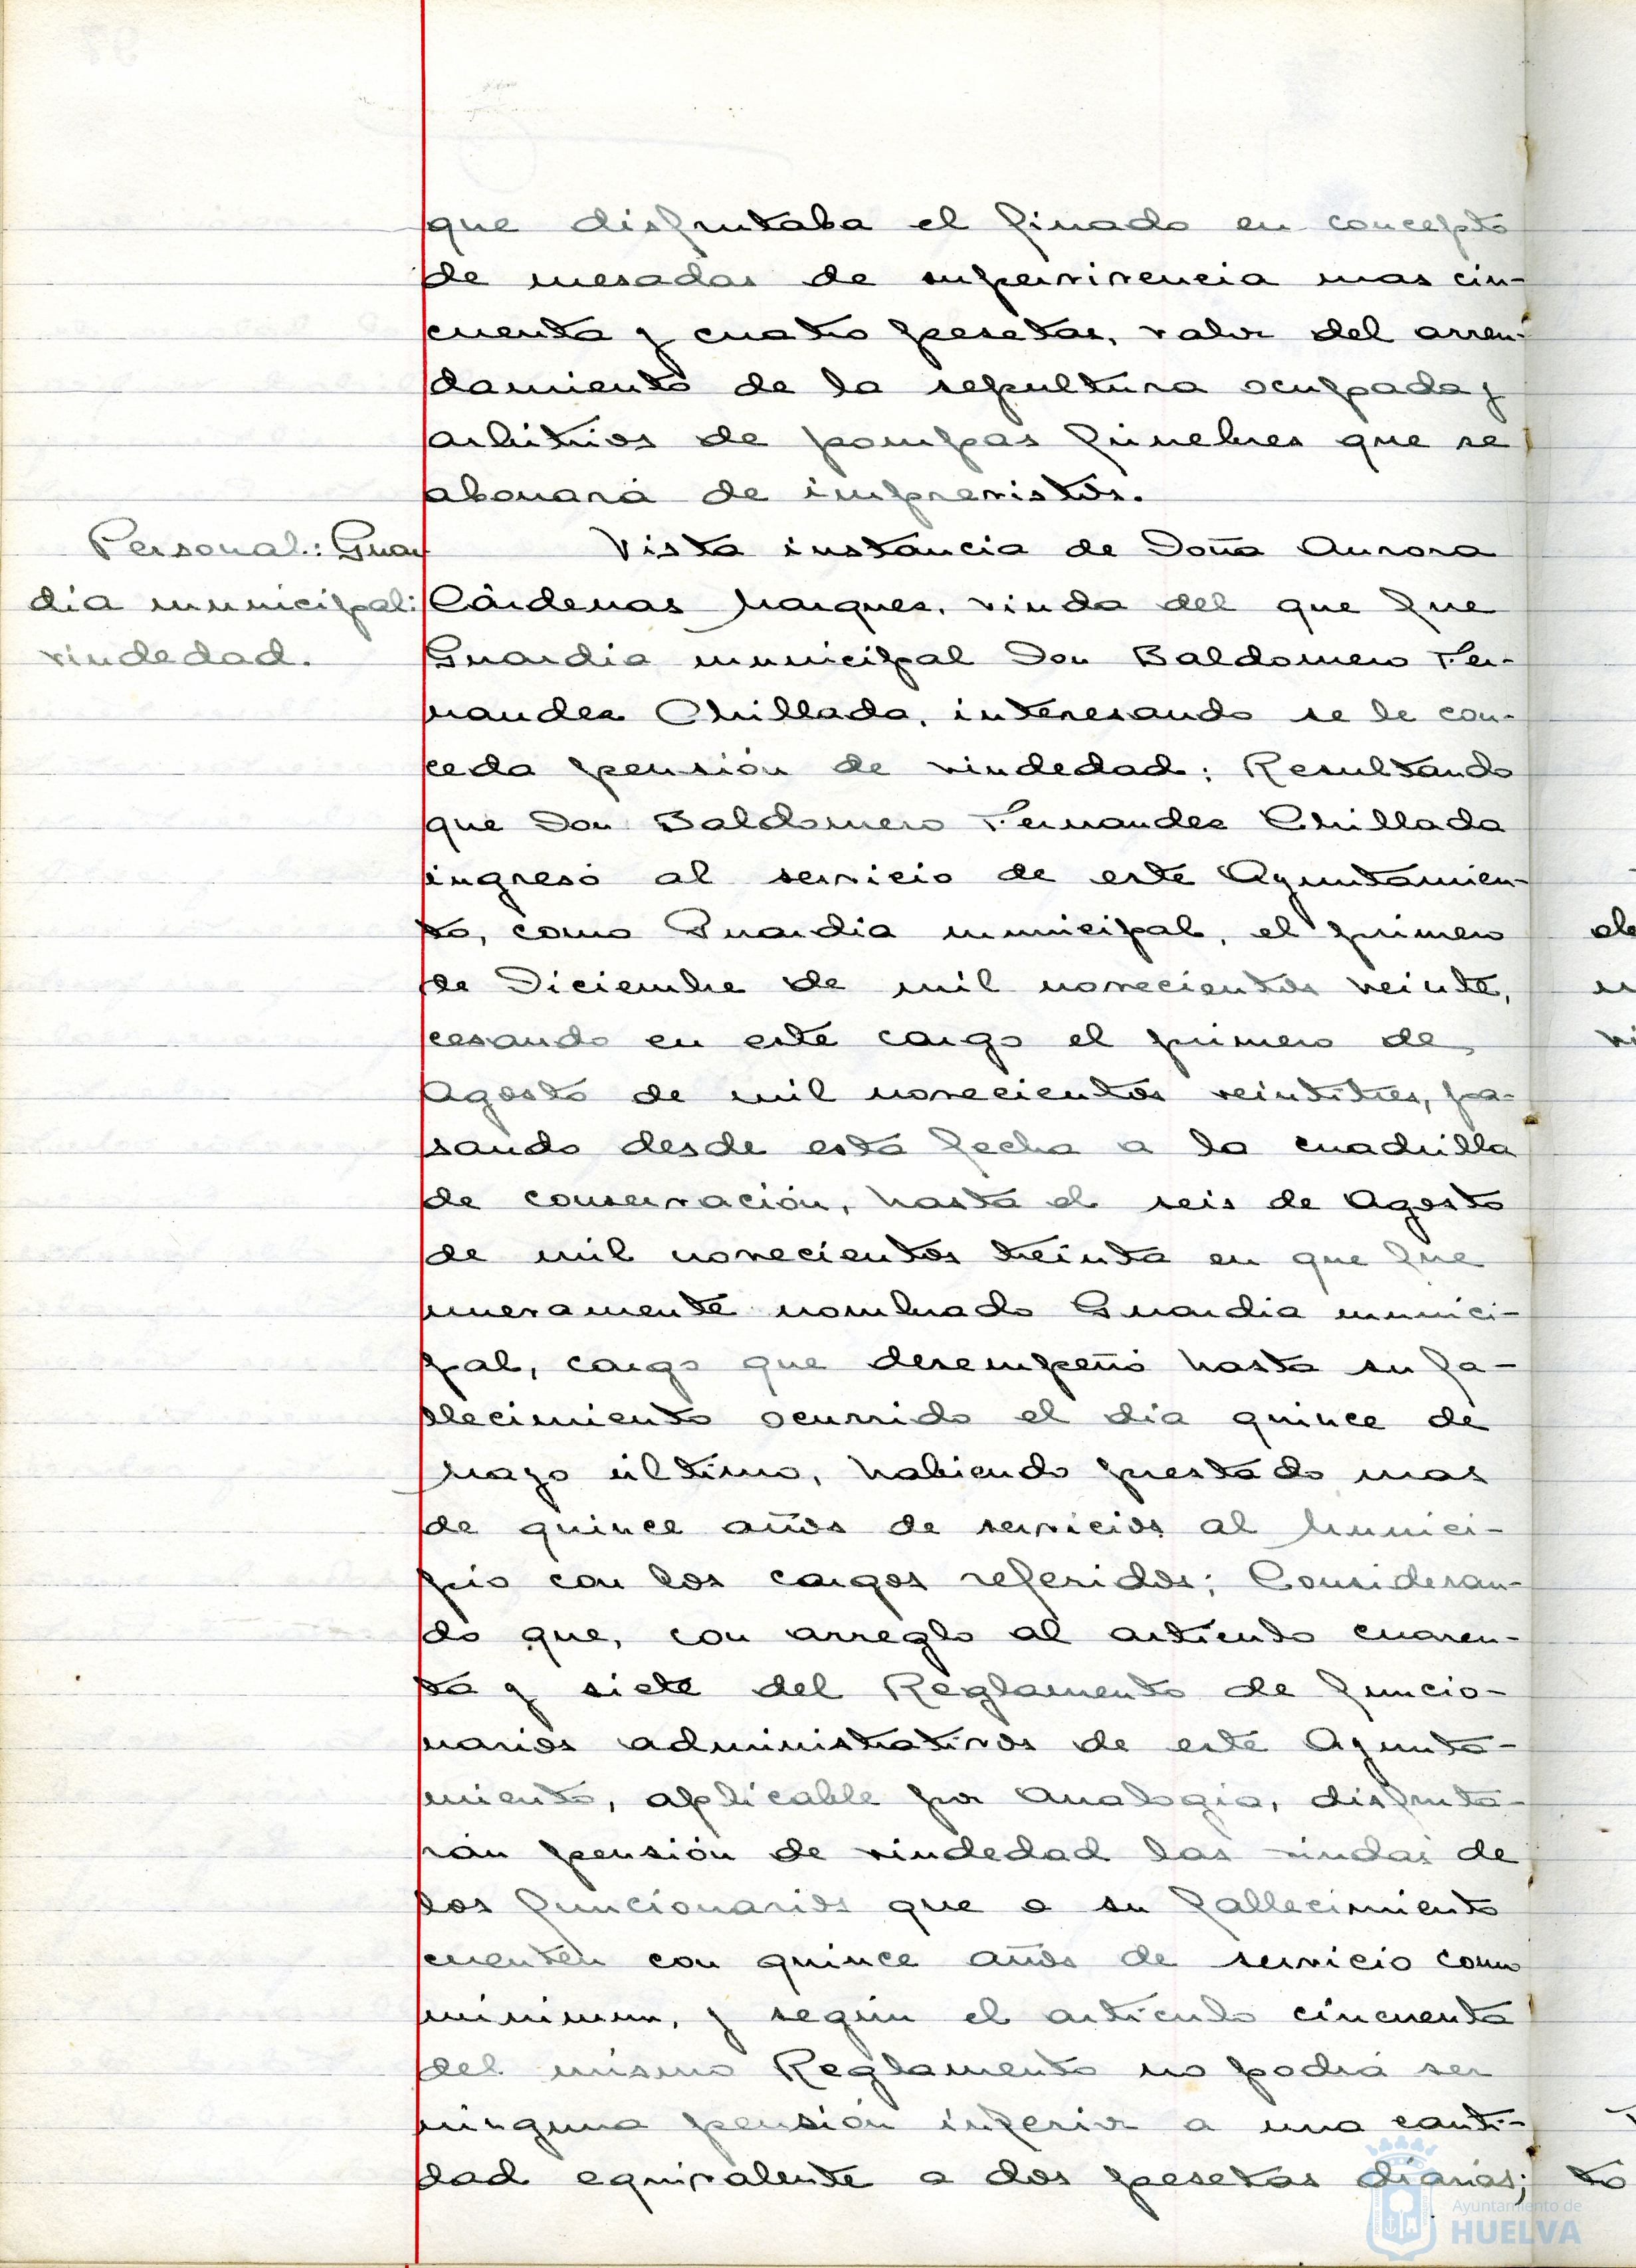 que disfrutaba el finado en concepto
de mesadas de supervivencia mas cin-
cuenta y cuatro pesetas, valor del arren-
damiento de la sepultura ocupada y
arbitrios de pompas fúnebres que se
abonará de imprevistos.
Personal: Guar
dia municipal:
viudedad.
Vista instancia de Doña Aurora
Cárdenas Marques, viuda del que fue
Guardia municipal Don Baldomero Fer-
nandez Chillada, interesando se le con-
ceda pensión de viudedad; Resultando
que Don Baldomero Fernandez Chillada
ingresó al servicio de este Ayuntamien-
to, como Guardia municipal, el primero
de Diciembre de mil novecientos veinte,
cesando en este cargo el primero de
Agosto de mil novecientos veintitres, pa-
sando desde esta fecha a la cuadrilla
de conservación, hasta el seis de Agosto
de mil novecientos treinta en que fue
nuevamente nombrado Guardia munici-
pal, cargo que desempeñó hasta su fa-
llecimiento ocurrido el día quince de
Mayo último, habiendo prestado mas
de quince años de servicios al Munici-
pio con los cargos referidos; Consideran-
do que, con arreglo al artículo cuaren-
ta y siete del Reglamento de funcio-
narios administrativos de este Ayunta-
miento, aplicable por analogía, disfruta-
rán pensión de viudedad las viudas de
los funcionarios que a su fallecimiento
cuenten con quince años de servicio como
mínimum, y según el artículo cincuenta
del mismo Reglamento no podrá ser
ninguna pensión inferior a una canti-
dad equivalente a dos pesetas diarias;
Ayuntamiento de
HUELVA